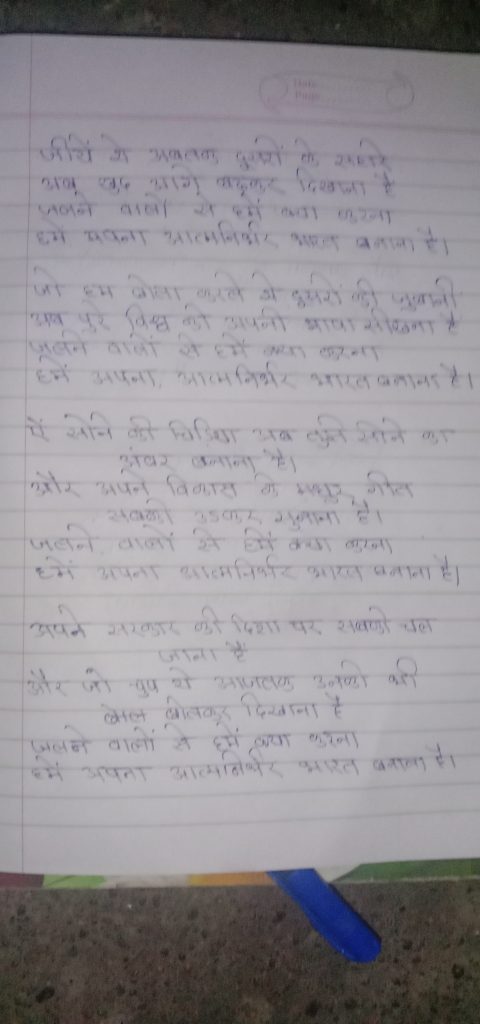 जीये थे अबतक दुसरों के सहारे
अब खुद आगे बढ़कर दिखाना है
जलने वालों से हमें क्या करना
हमें अपना आत्मनिर्भर भारत बनाना है।
जो हम बोला करते थे दुसरों की जुबानी
अब पुरे विश्व को अपनी भाषा सीखाना है
जलने वालों से हमें क्या करना
हमें अपना आत्मनिर्भर भारत बनाना है।
ऐं सोने की चिड़िया अब तुझे सोने का
अंबर बनाना है।
और अपने विकास के मधुर गीत
सबको उड़कर सुनाना है।
जलने वालों से हमें क्या करना
हमें अपना आत्मनिर्भर भारत बनाना है।
अपने सरकार की दिशा पर सबको चल
जाना है
और जो चुप थे आजतक उनको भी
बोल बोलकर दिखाना है
जलने वालों से हमें क्या करना
हमें अपना आत्मनिर्भर भारत बनाना है।